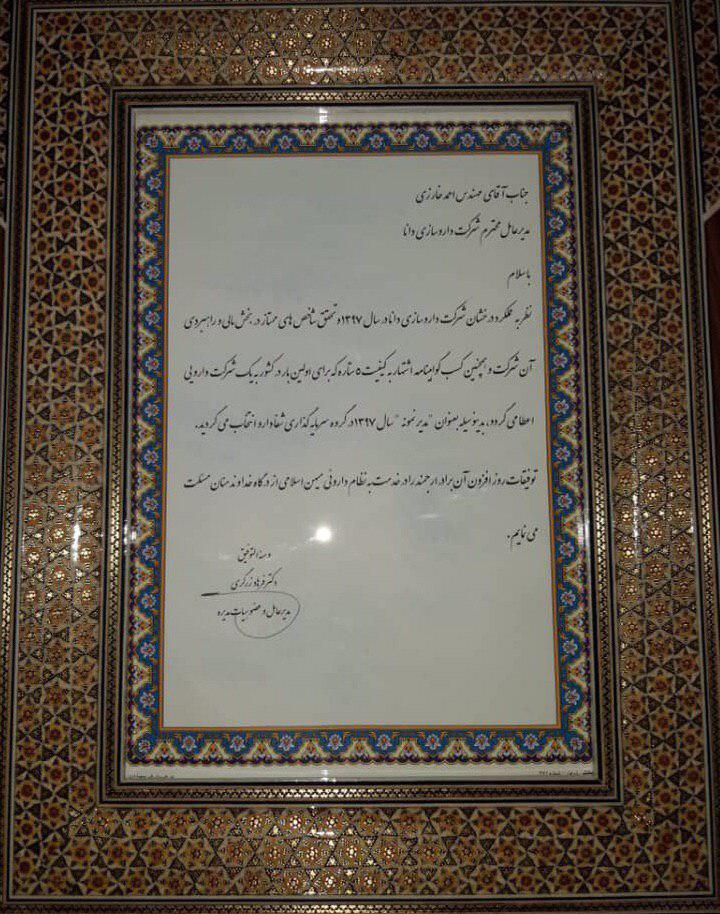 جناب آقای مهندس احمد خارزی
مدیرعامل محترم شرکت داروسازی دانا
باسلام
نظر به عملکرد درخشان شرکت داروسازی دانا در سال ۱۳۹۷ و تحقق شاخص های ممتاز در بخش مالی و راهبردی
آن شرکت و همچنین کسب گواهینامه اشتهار به کیفیت ۵ ستاره که برای اولین بار در کشور به یک شرکت دارویی
اعطا می گردد، بدینوسیله بعنوان "مدیر نمونه" سال ۱۳۹۷ در گروه سرمایه گذاری شفادارو انتخاب می گردید.
توفیقات روز افزون آن برادر ارجمند را در خدمت به نظام داروئی میهن اسلامی از درگاه خداوند منان مسئلت
می نمایم.
و من اله التوفیق
دکتر فرهاد زرگری
مدیرعامل و عضو هیات مدیره